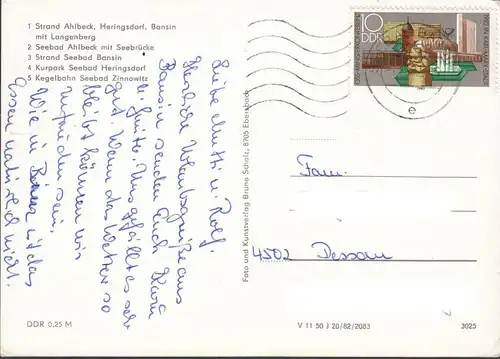 1 Strand Ahlbeck, Heringsdorf, Bansin
mit Langenberg
2 Seebad Ahlbeck mit Seebrücke
3 Strand Seebad Bansin
4 Kurpark Seebad Heringsdorf
5 Kegelbahn Seebad Zinnowitz
Liebe Mutti u. Rolf.
Herzliche Urlaubsgrüße aus
Bansin senden Euch Karin
u. Uns gefällt es sehr
gut. Wenn das Wetter so
bleibt können wir
zufrieden sein.
Wie in ist das
Essen natürlich nicht.
DDR 0,25 M
Foto und Kunstverlag Bruno Scholz, 8705 Ebersbach
10
DDR
e
Fam.
4502 Dessau
V 11 50 J 20/82/2083
3025